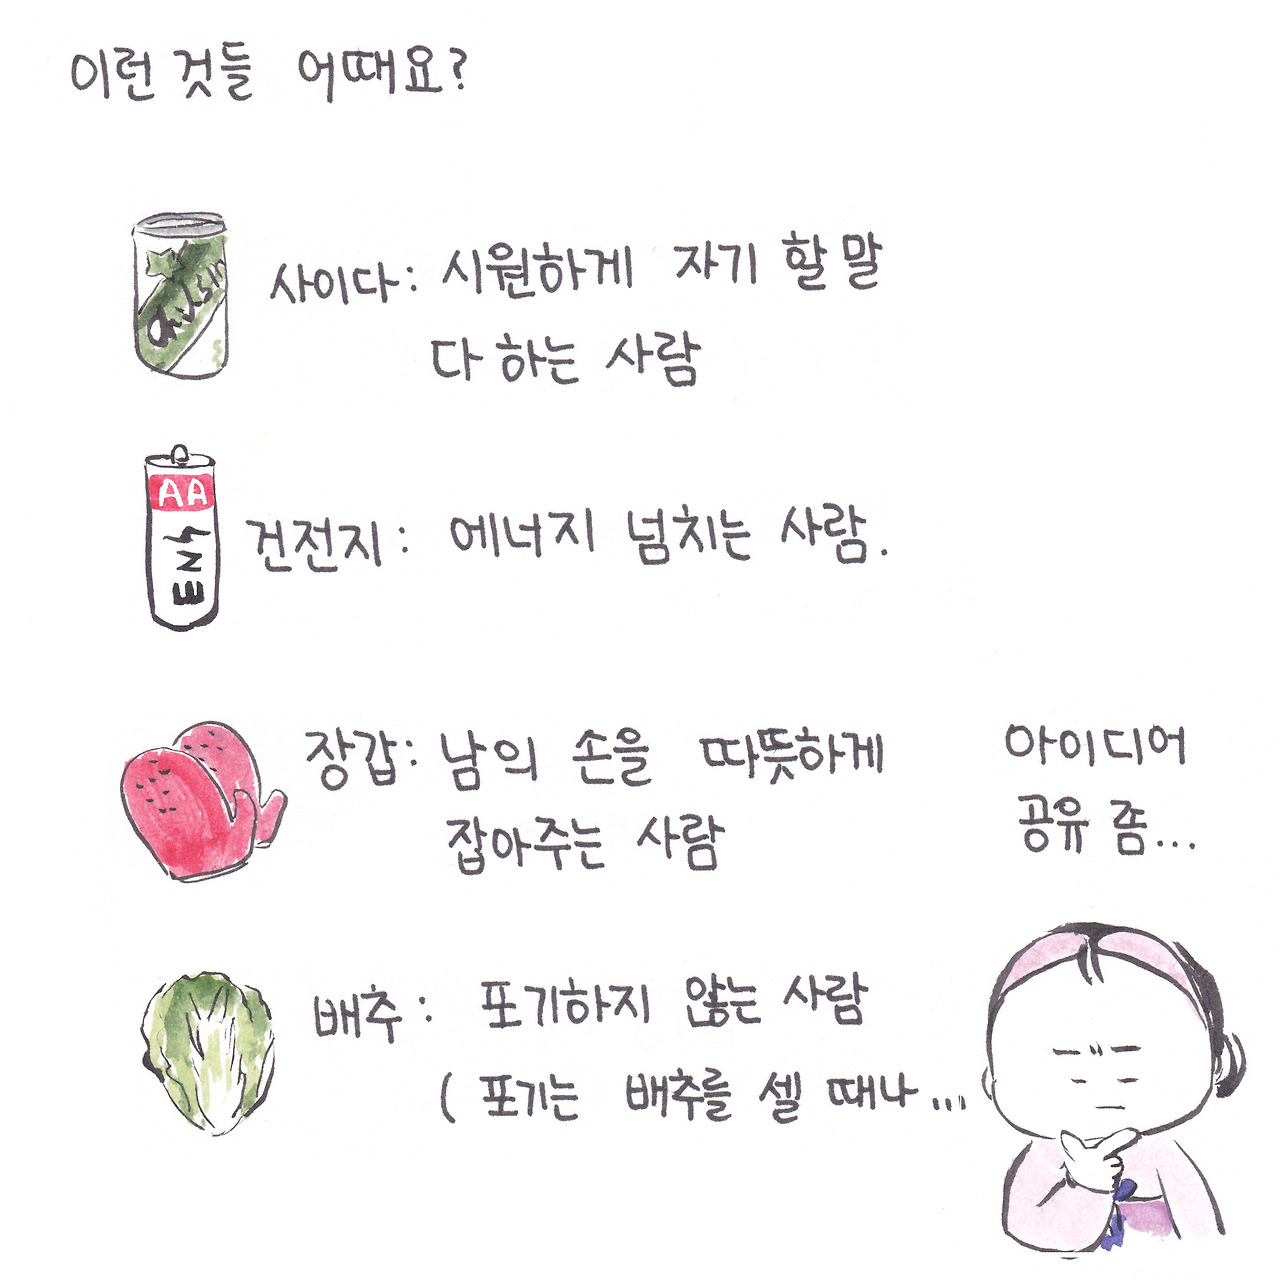 이런 것들 어때요?
chilsm
사이다: 시원하게 자기 할 말
다 하는 사람
AA
EN
건전지: 에너지 넘치는 사람.
장갑: 남의 손을 따뜻하게
잡아주는 사람
아이디어
공유 좀...
배추: 포기하지 않는 사람
( 포기는 배추를 셀 때나...